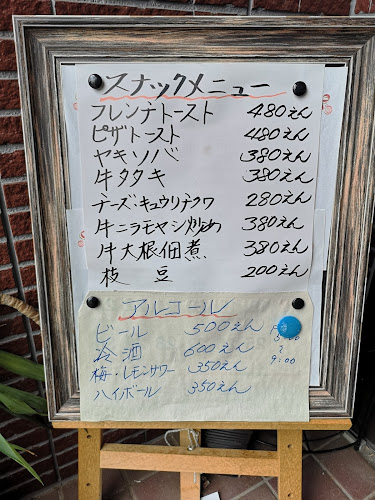 スナックメニュー
フレンチトースト 480えん
ピザトースト 480えん
ヤキソバ 380えん
牛タタキ 380えん
チーズ・キュウリチクワ 280えん
牛ニラモヤシ炒め 380えん
牛大根佃煮 380えん
枝豆 200えん
アルコール
ビール 500えん
冷酒 600えん
梅・レモンサワー 350えん
ハイボール 350えん
5:00
〜
9:00